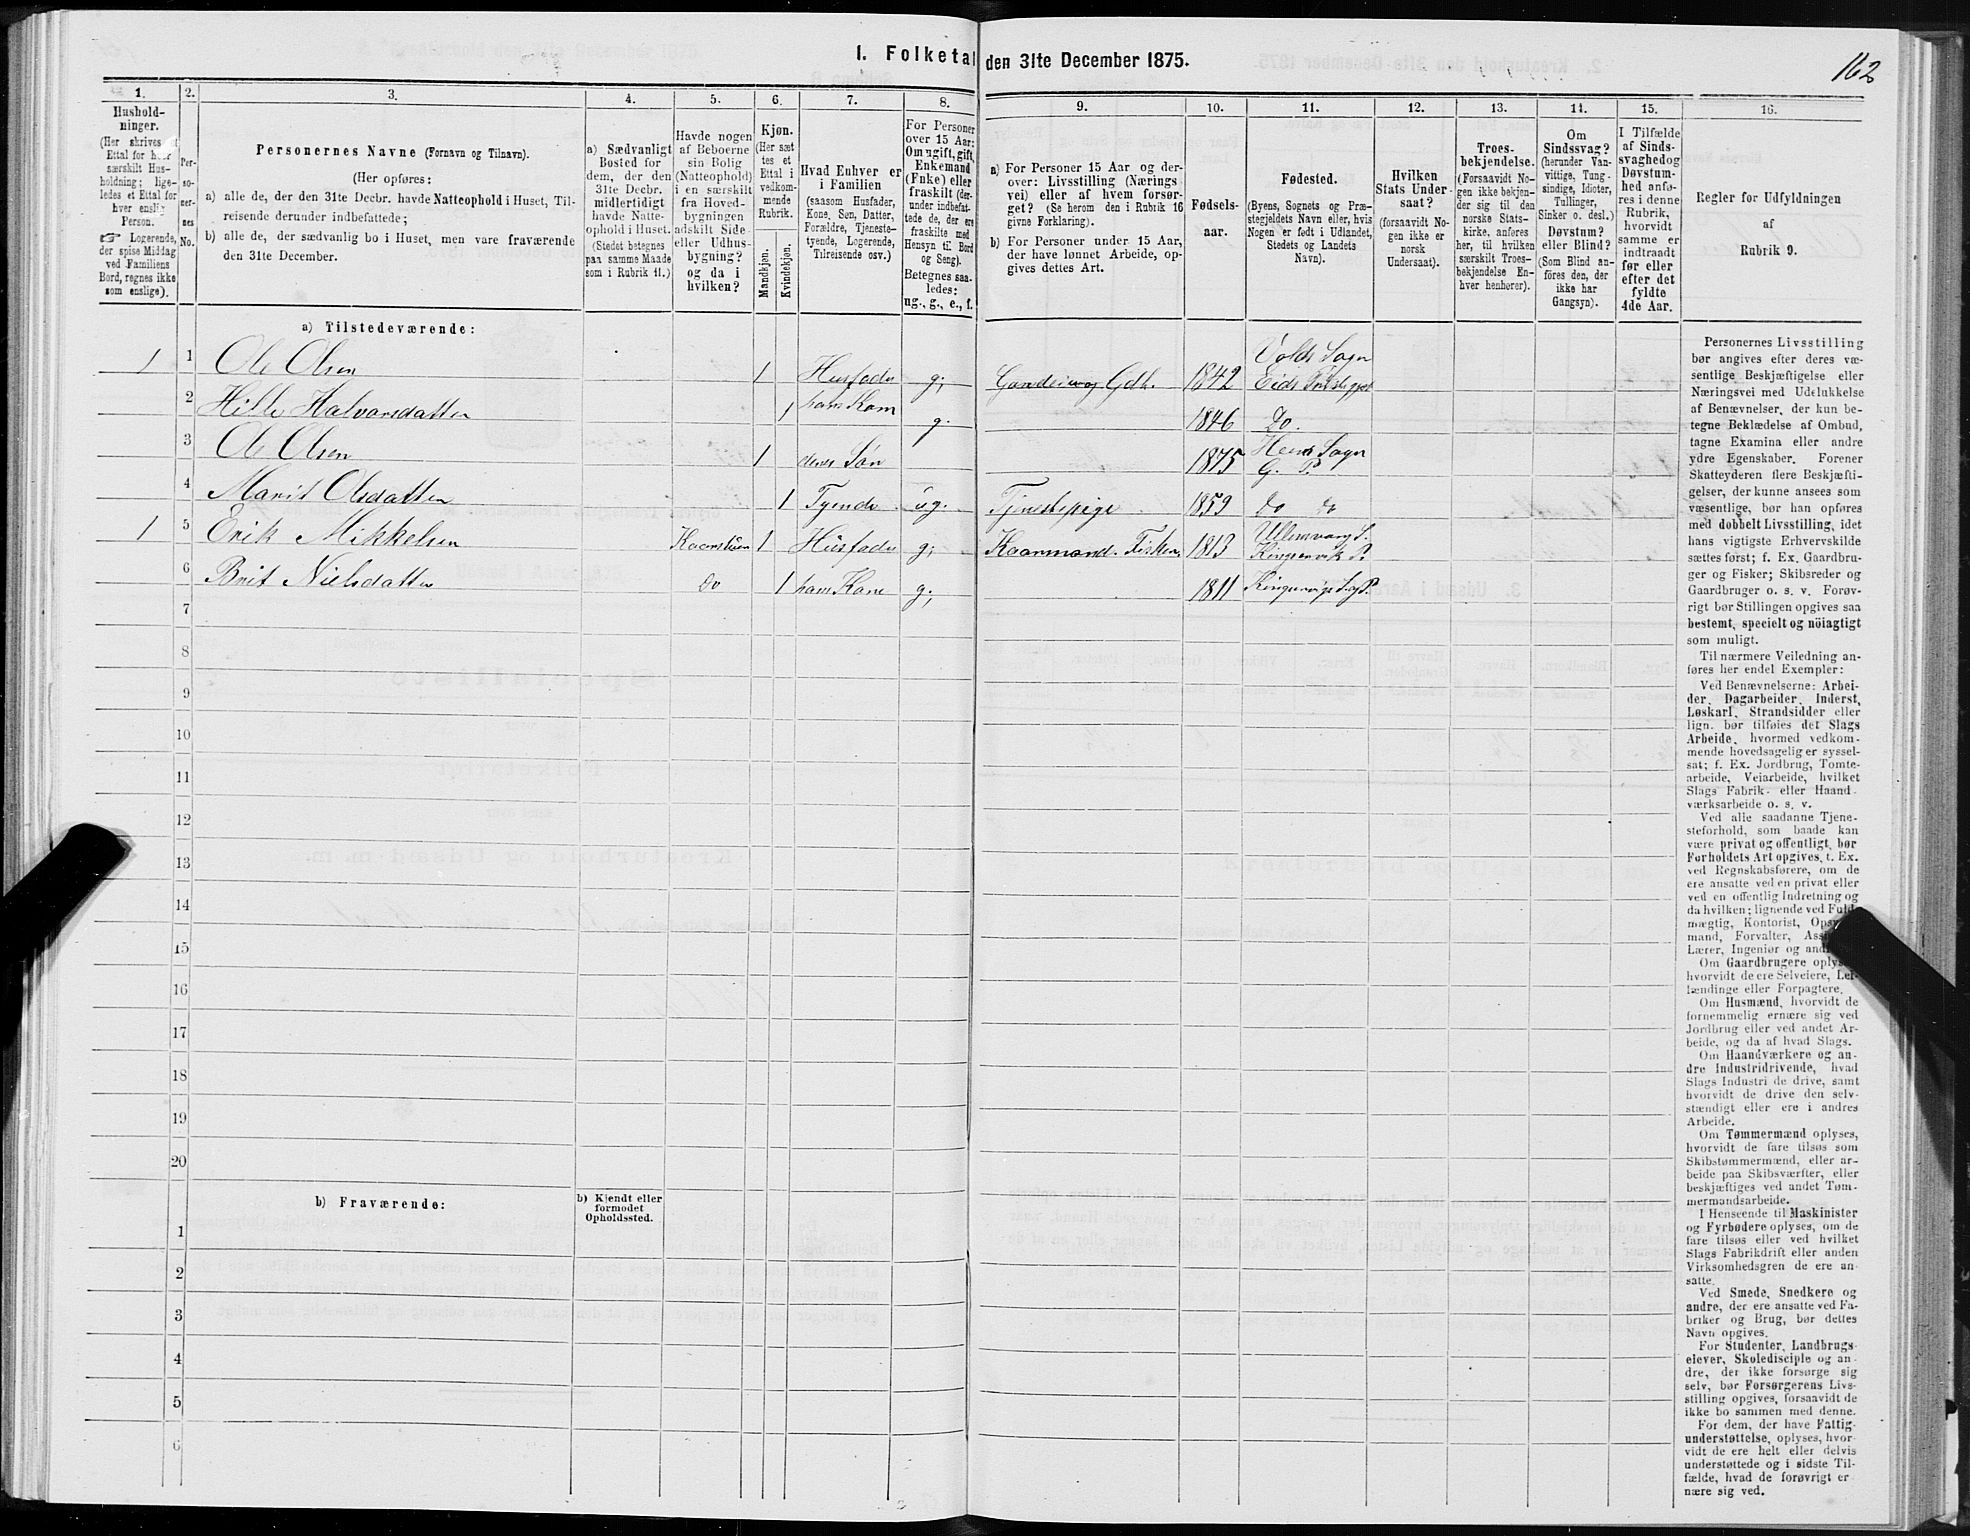 162
I. Folketal den 31te December 1875.
1.
Hushold-
ninger.
(Her skrives et
Ettal for hver
særskilt Hus-
holdning; lige-
ledes et Ettal for
hver enslig
Person.
☞ Logerende,
der spise Middag
ved Familiens
Bord, regnes ikke
som enslige).
2.
Per-
so-
ner-
nes
No.
3.
Personernes Navne (Fornavn og Tilnavn).
(Her opføres:
a) alle de, der den 31te Decbr. havde Natteophold i Huset, Til-
reisende derunder indbefattede;
b) alle de, der sædvanlig bo i Huset, men vare fraværende
den 31te December.
4.
a) Sædvanligt
Bosted for
dem, der den
31te Decbr.
midlertidigt
havde Natte-
ophold i Huset.
(Stedet betegnes
paa samme Maade
som i Rubrik 11.)
5.
Havde nogen
af Beboerne
sin Bolig
(Natteophold)
i en særskilt
fra Hoved-
bygningen
adskilt Side-
eller Udhus-
bygning?
og da i
hvilken?
6.
Kjøn.
(Her sæt
tes et
Ettal i
vedkom-
mende
Rubrik.
Mandkjøn.
Kvindekjøn.
7.
Hvad Enhver er
i Familien
(saasom Husfader,
Kone, Søn, Datter,
Forældre, Tjeneste-
tyende, Logerende,
Tilreisende osv.)
8.
For Personer
over 15 Aar:
Om ugift, gift,
Enkemand
(Enke) eller
fraskilt (der-
under indbefat-
tede de, der ere
fraskilte med
Hensyn til Bord
og Seng).
Betegnes saa-
ledes:
ug., g., e., f.
9.
a) For Personer 15 Aar og der-
over: Livsstilling (Nærings
vei) eller af hvem forsør-
get? (Se herom den i Rubrik 16
givne Forklaring).
b) For Personer under 15 Aar,
der have lønnet Arbeide, op-
gives dettes Art.
10.
Fødsels-
aar.
11.
Fødested.
(Byens, Sognets og Præ-
stegjeldets Navn eller, hvis
Nogen er født i Udlandet,
Stedets og Landets
Navn).
12.
Hvilken
Stats Under-
saat?
(forsaavidt No-
gen ikke er
norsk
Undersaat).
13.
Troes-
bekjendelse.
(Forsaavidt No-
gen ikke bekjen-
der sig til den
norske Stats-
kirke, anføres
her, til hvilken
særskilt Troes-
bekjendelse En-
hver henhører).
14.
Om
Sindssvag?
(herunder Van-
vittige, Tung-
sindige, Idioter,
Tullinger,
Sinker o. desl.)
Døvstum?
eller Blind?
(Som Blind an-
føres den, der
ikke har
Gangsyn).
15.
I Tilfælde
af Sinds-
svaghed og
Døvstum-
hed anfø-
res i denne
Rubrik,
hvorvidt
samme er
indtraadt
før eller
efter det
fyldte
4de Aar.
16.
Regler for Udfyldningen
af
Rubrik 9.
a) Tilstedeværende:
1 1 Ole Olsen 1 Husfader g; Gdbr. 1842 Volds Sogn Eids
2 Hille Halvorsdatter 1 hans Kone g. 1846 Do.
3 Ole Olsen 1 deres Søn 1875 Hens Sogn G. P.
4 Marit Olsdatter 1 Tyende ug. Tjenestepige 1859 do do
1 5 Erik Mikkelsen Kaarstuen 1 Husfader g; Kaarmand. Fisker 1813 Ullensvang S. Kingservik P.
6 Brit Nielsdatter Do 1 hans Kone g; 1811
7
8
9
10
11
12
13
14
15
16
17
18
19
20
b) Fraværende:
b) Kjendt eller
formodet
Opholdssted.
1
2
3
4
5
6
Personernes Livsstilling
bør angives efter deres væ-
sentlige Beskjæftigelse eller
Næringsvei med Udelukkelse
af Benævnelser, der kun be-
tegne Beklædelse af Ombud,
tagne Examina eller andre
ydre Egenskaber. Forener
Skatteyderen flere Beskjæfti-
gelser, der kunne ansees som
væsentlige, bør han opføres
med dobbelt Livsstilling, idet
hans vigtigste Erhvervskilde
sættes først; f. Ex. Gaardbru-
ger og Fisker; Skibsreder og
Gaardbruger o. s. v. Forøv-
rigt bør Stillingen opgives saa
bestemt, specielt og nöiagtigt
som muligt.
Til nærmere Veiledning an-
føres her endel Exempler:
Ved Benævnelserne: Arbei-
der, Dagarbeider, Inderst,
Løskarl, Strandsidder eller
lign. bør tilføies det Slags
Arbeide, hvormed vedkom-
mende hovedsagelig er syssel-
sat; f. Ex. Jordbrug, Tomte-
arbeide, Veiarbeide, hvilket
Slags Fabrik- eller Haand-
værksarbeide o. s. v.
Ved alle saadanne Tjene-
steforhold, som baade kan
være privat og offentligt, bør
Forholdets Art opgives, t. Ex.
ved Regnskabsførere, om de
ere ansatte ved en privat eller
ved en offentlig Indretning og
da hvilken; lignende ved Fuld-
mægtig, Kontorist, Opsyns-
mand, Forvalter, Assistent,
Lærer, Ingeniør og andre.
Om Gaardbrugere oplyses,
hvorvidt de ere Selveiere, Lei-
lændinge eller Forpagtere.
Om Husmænd, hvorvidt de
fornemmelig ernære sig ved
Jordbrug eller ved andet Ar-
beide, og da af hvad Slags.
Om Haandværkere og an-
dre Industridrivende, hvad
Slags Industri de drive, samt
hvorvidt de drive den selv-
stændigt eller ere i andres
Arbeide.
Om Tømmermænd oplyses,
hvorvidt de fare tilsøs som
Skibstømmermænd, eller ar-
beide paa Skibsværfter, eller
beskjæftiges ved andet Tøm-
mermandsarbeide.
I Henseende til Maskinister
og Fyrbødere oplyses, om de
fare tilsøs eller ved hvilket
Slags Fabrikdrift eller anden
Virksomhedsgren de ere an-
satte.
Ved Smede, Snedkere og
andre, der ere ansatte ved Fa-
briker og Brug, bør dettes
Navn opgives.
For Studenter, Landbrugs-
elever, Skoledisciple og an-
dre, der ikke forsørge sig
selv, bør Forsørgerens Livs-
stilling opgives, forsaavidt de
ikke bo sammen med denne.
For dem, der have Fattig-
understøttelse, oplyses, hvor-
vidt de ere helt eller delvis
understøttede og i sidste Til-
fælde, hvad de forøvrigt er-
nære sig ved.